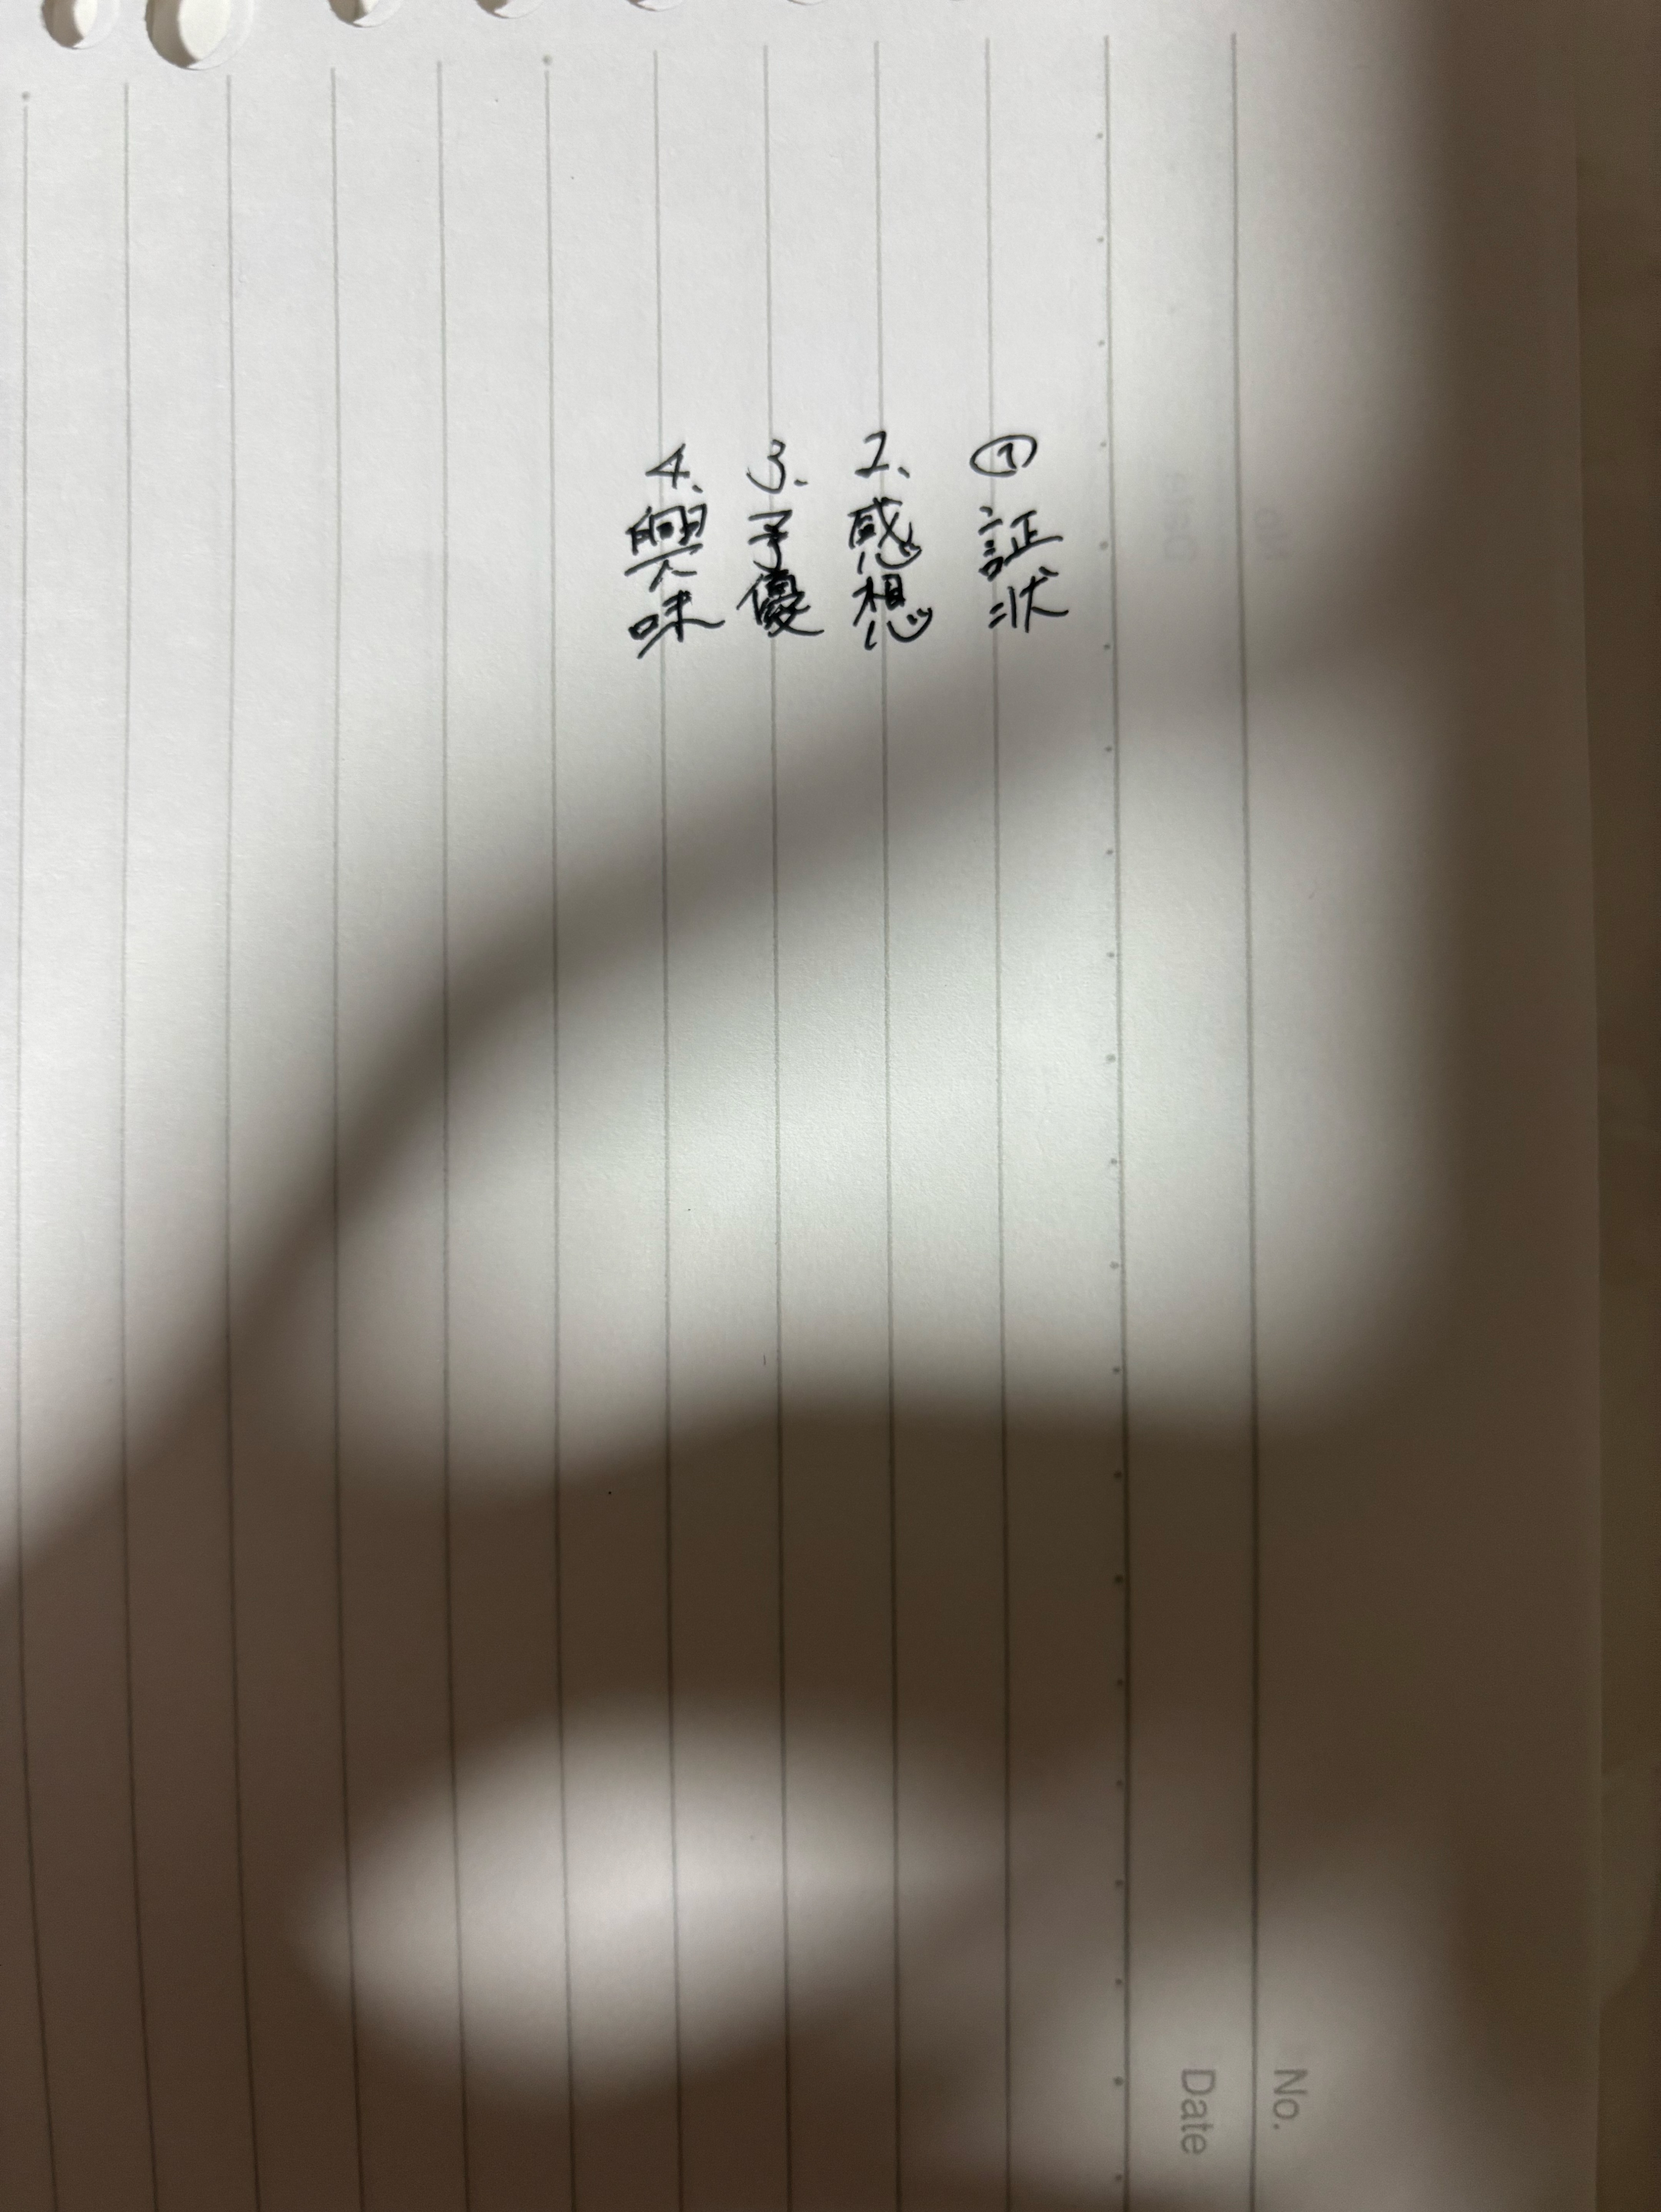 ① 証状
2、感想
3、予優
4、興味
No.
Date